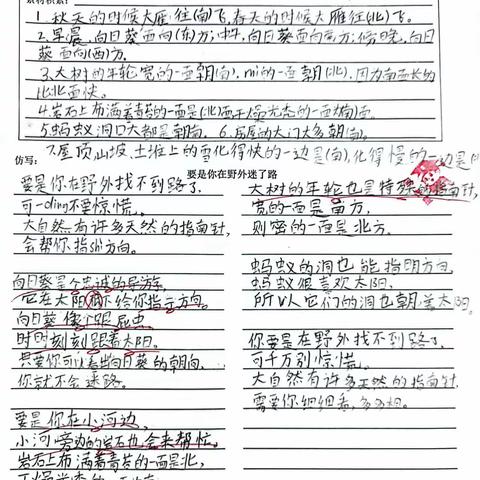 素材积累：
1.秋天的时候大雁往(南)飞,春天的时候大雁往(北)飞。
2.早晨,向日葵面向(东)方;中午,向日葵面向南方;傍晚,向日
葵面向(西)方.
3.大树的年轮宽的一面朝(南),mi的一面朝(北),因为南面长的
比北面快。
4.岩石上布满着青苔的一面是(北)面干燥光秃的一面(南)面.
5.蚂蚁洞口大都是朝南. 6.房屋的大门大多朝(南).
7.屋顶,山坡,土堆上的雪化得快的一边是(南),化得慢的一边是
仿写:
要是你在野外迷了路
要是你在野外找不到路了,
可一ding不要惊慌。
大自然有许多天然的指南针,
会帮你指shi方向。
向日葵是个忠诚的导游,
它在太阳下给你指示方向。
向日葵像个跟屁虫
时时刻刻跟着太阳。
只要你可以看出向日葵的朝向,
你就不会迷路。
要是你在小河边,
小河旁边的岩石也会来帮忙。
岩石上布满着青苔的一面是北,
大树的年轮也是特殊的指南针,
宽的一面是南方,
则密的一面是北方.
蚂蚁的洞也能指明方向,
蚂蚁很喜欢太阳,
所以它们的洞也朝着太阳.
你要是在野外找不到路了,
可千万别惊慌。
大自然有许多天然的指南针
需要你细细看,多多想.